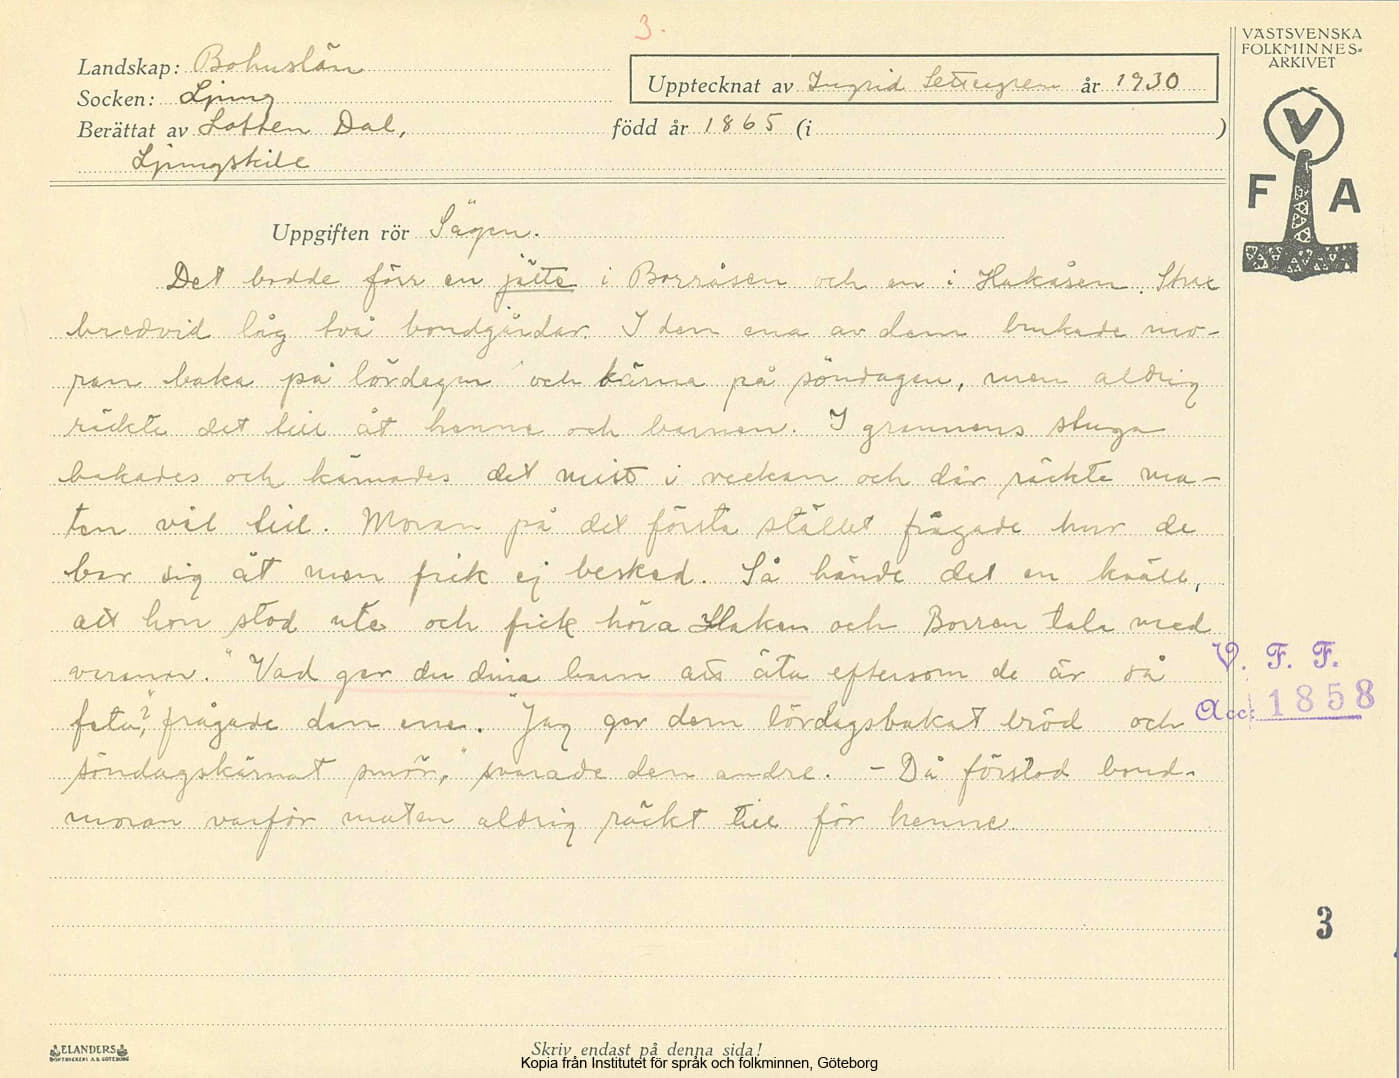 3.
VÄSTSVENSKA
FOLKMINNES-
ARKIVET
V
F A
Landskap: Bohuslän
Socken: Ljung
Upptecknat av Ingrid år 1930
Berättat av Lotten Dal, född år 1865 (i )
Ljungskile
Uppgiften rör Sägen.
Det bodde förr en jätte i Borråsen och en i Hakåsen. Strax
bredvid låg två bondgårdar. I den ena av dem brukade mo-
ran baka på lördagen och kärna på söndagen, men aldrig
räckte det till åt henne och barnen. I grannens stuga
bakades och kärnades det mitt i veckan och där räckte ma-
ten väl till. Moran på det första stället frågade hur de
bar sig åt men fick ej besked. Så hände det en kväll,
att hon stod ute och fick höra Haken och Borren tala med
varann. "Vad ger du dina barn att äta eftersom de är så
feta?", frågade den ene. "Jag ger dem lördagsbakat bröd och
söndagskärnat smör," svarade den andre. - Då förstod bond-
moran varför maten aldrig räckt till för henne.
V. F. F.
Acc: 1858
3
ELANDERS
BOKTRYCKERI A.B. GÖTEBORG
Skriv endast på denna sida!
Kopia från Institutet för språk och folkminnen, Göteborg